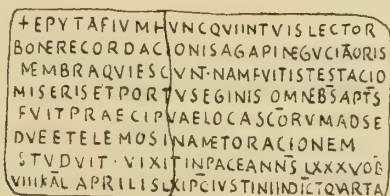 +EPYTAFIVM HVNC QVI INTVIS LECTOR
BONE RECORDACIONIS AGAPI NEGVCIATORIS
MEMBRA QVIESCVNT·NAM FVIT ISTE STACIO
MISERIS ET PORTVS EGINIS OMNEBS APTS
FVIT PRAECIPVAE LOCA SCORVM ADSE
DVE ET ELEMOSINAM ET ORACIONEM
STVDVIT·VIXIT IN PACE ANNS LXXXV OB
VIIII KAL APRILIS LXI PC IVSTINI INDICT QVARTA